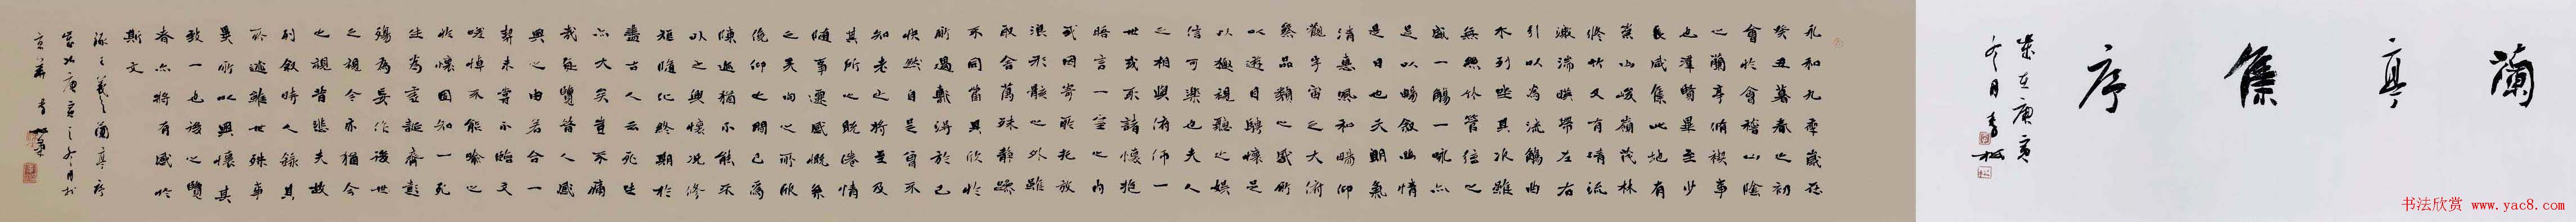 蘭亭集序
歲在庚寅
冬月青松
永和九年歲在
癸丑暮春之初
會於會稽山陰
之蘭亭脩禊事
也羣賢畢至少
長咸集此地有
崇山峻嶺茂林
修竹又有清流
激湍暎帶左右
引以為流觴曲
水列坐其次雖
無絲竹管弦之
盛一觴一詠亦
足以暢敘幽情
是日也天朗氣
清惠風和暢仰
觀宇宙之大俯
察品類之盛所
以遊目騁懷足
以極視聽之娛
信可樂也夫人
之相與俯仰一
世或取諸懷抱
晤言一室之內
或因寄所託放
浪形骸之外雖
取舍萬殊靜躁
不同當其欣於
所遇暫得於己
快然自足曾不
知老之將至及
其所之既倦情
隨事遷感慨系
之矣向之所欣
俛仰之間已為
陳迹猶不能不
以之興懷況修
短隨化終期於
盡古人云死生
亦大矣豈不痛
哉每覽昔人感
興之由若合一
契未嘗不臨文
嗟悼不能喻之
於懷固知一死
生為虛誕齊彭
殤為妄作後世
之視今亦猶今
之視昔悲夫故
列敘時人錄其
所述雖世殊事
異所以興懷其
致一也後之覽
者亦將有感於
斯文
錄王羲之蘭亭序
歲次庚寅之冬月於
京華 青松
书法欣赏 www.yac8.com